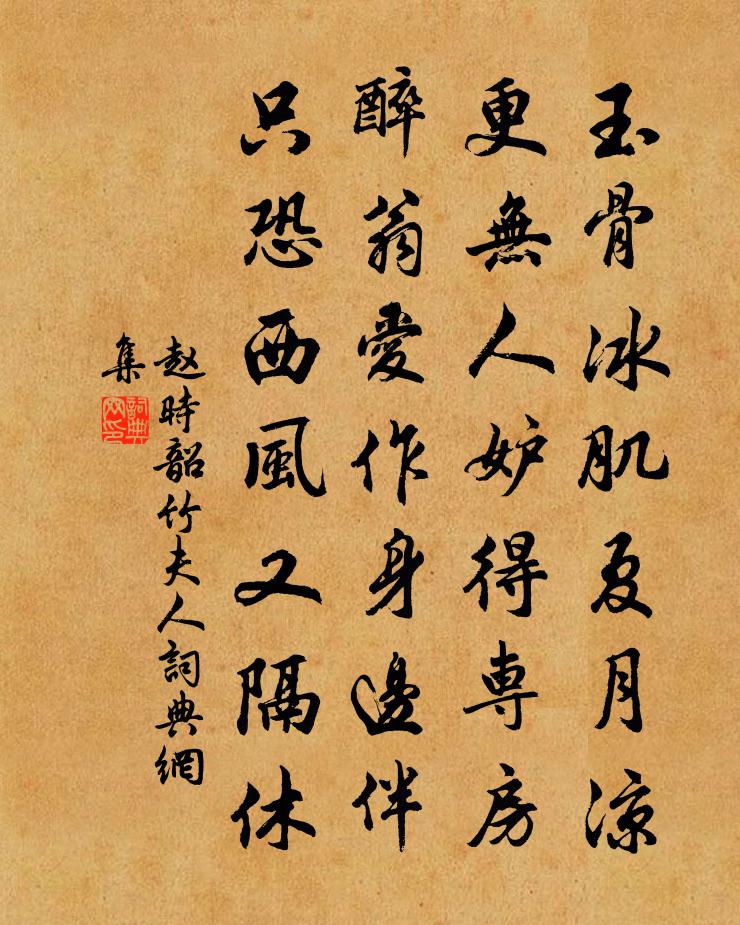 玉骨冰肌夏月凉
更無人妒得専房
醉翁愛作身邊伴
只恐西風又隔休
赵時韶竹夫人詞典網
集
詞典
网印